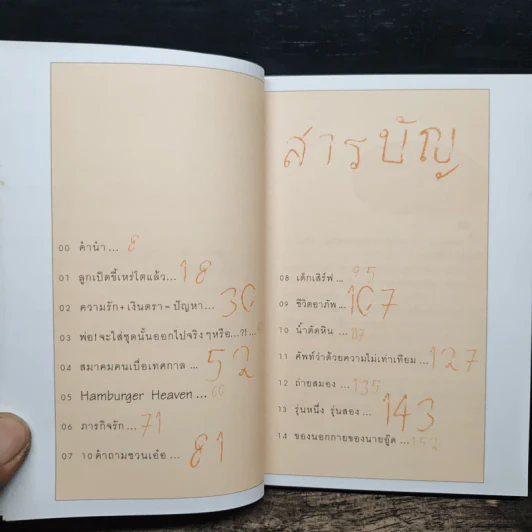 00 คำนำ ... 8
01 ลูกเป็ดขี้เหร่โตแล้ว... 18
02 ความรัก+เงินตรา = ปัญหา... 30
03 พ่อ! จะใส่ชุดนั้นออกไปจริงๆหรือ...?! ...
04 สมาคมคนเบื่อเทศกาล ... 52
05 Hamburger Heaven ... 60
06 ภารกิจรัก ... 71
07 10 คำถามชวนเอ๋อ ... 81
สารบัญ
08 เด็กเสิร์ฟ ... 95
09 ชีวิตอาภัพ ... 107
10 น้ำตัดหิน ... 117
11 ศัพท์ว่าด้วยความไม่เท่าเทียม ... 127
12 ถ่ายสมอง ... 135
13 รุ่นหนึ่ง รุ่นสอง ... 143
14 ของนอกกายของนายอู๊ด ... 152